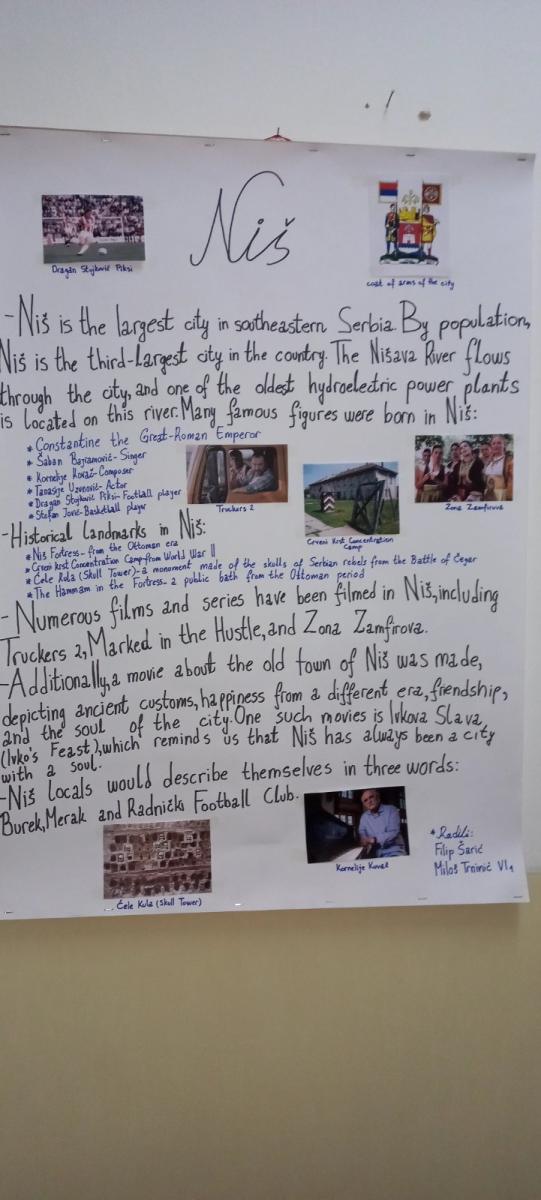 Niš
Dragan Stojković Piksi
coat of arms of the city
-Niš is the largest city in southeastern Serbia. By population,
Niš is the third-largest city in the country. The Nišava River flows
through the city, and one of the oldest hydroelectric power plants
is located on this river. Many famous figures were born in Niš:
* Constantine the Great-Roman Emperor
* Šaban Bajramović-Singer
* Kornelije Kovač-Composer
* Tanasije Uzunović-Actor
* Dragan Stojković Piksi-Football player
* Stefan Jović-Basketball player
Truckers 2
Crveni Krst Concentration
Camp
Zona Zamfirova
-Historical Landmarks in Niš:
* Niš Fortress-from the Ottoman era
* Crveni Krst Concentration Camp-from World War II
* Ćele Kula (Skull Tower)-a monument made of the skulls of Serbian rebels from the Battle of Čegar
* The Hammam in the Fortress-a public bath from the Ottoman period
-Numerous films and series have been filmed in Niš, including
Truckers 2, Marked in the Hustle, and Zona Zamfirova.
-Additionally, a movie about the old town of Niš was made,
depicting ancient customs, happiness from a different era, friendship,
and the soul of the city. One such movies is Ivkova Slava
(Ivko's Feast), which reminds us that Niš has always been a city
with a soul.
-Niš locals would describe themselves in three words:
Burek, Merak and Radnički Football Club.
Ćele Kula (Skull Tower)
Kornelije Kovač
* Radili:
Filip Šarić
Miloš Trninić VI1